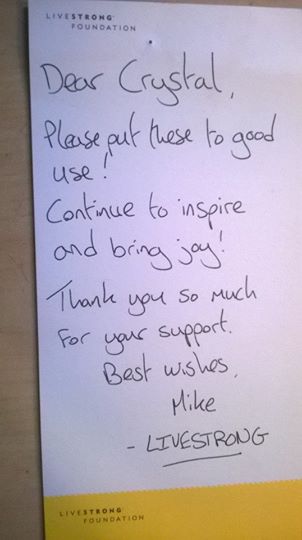 LIVESTRONG
FOUNDATION
Dear Crystal,
Please put these to good
use!
Continue to inspire
and bring joy!
Thank you so much
for your support.
Best wishes,
Mike
- LIVESTRONG
LIVESTRONG
FOUNDATION